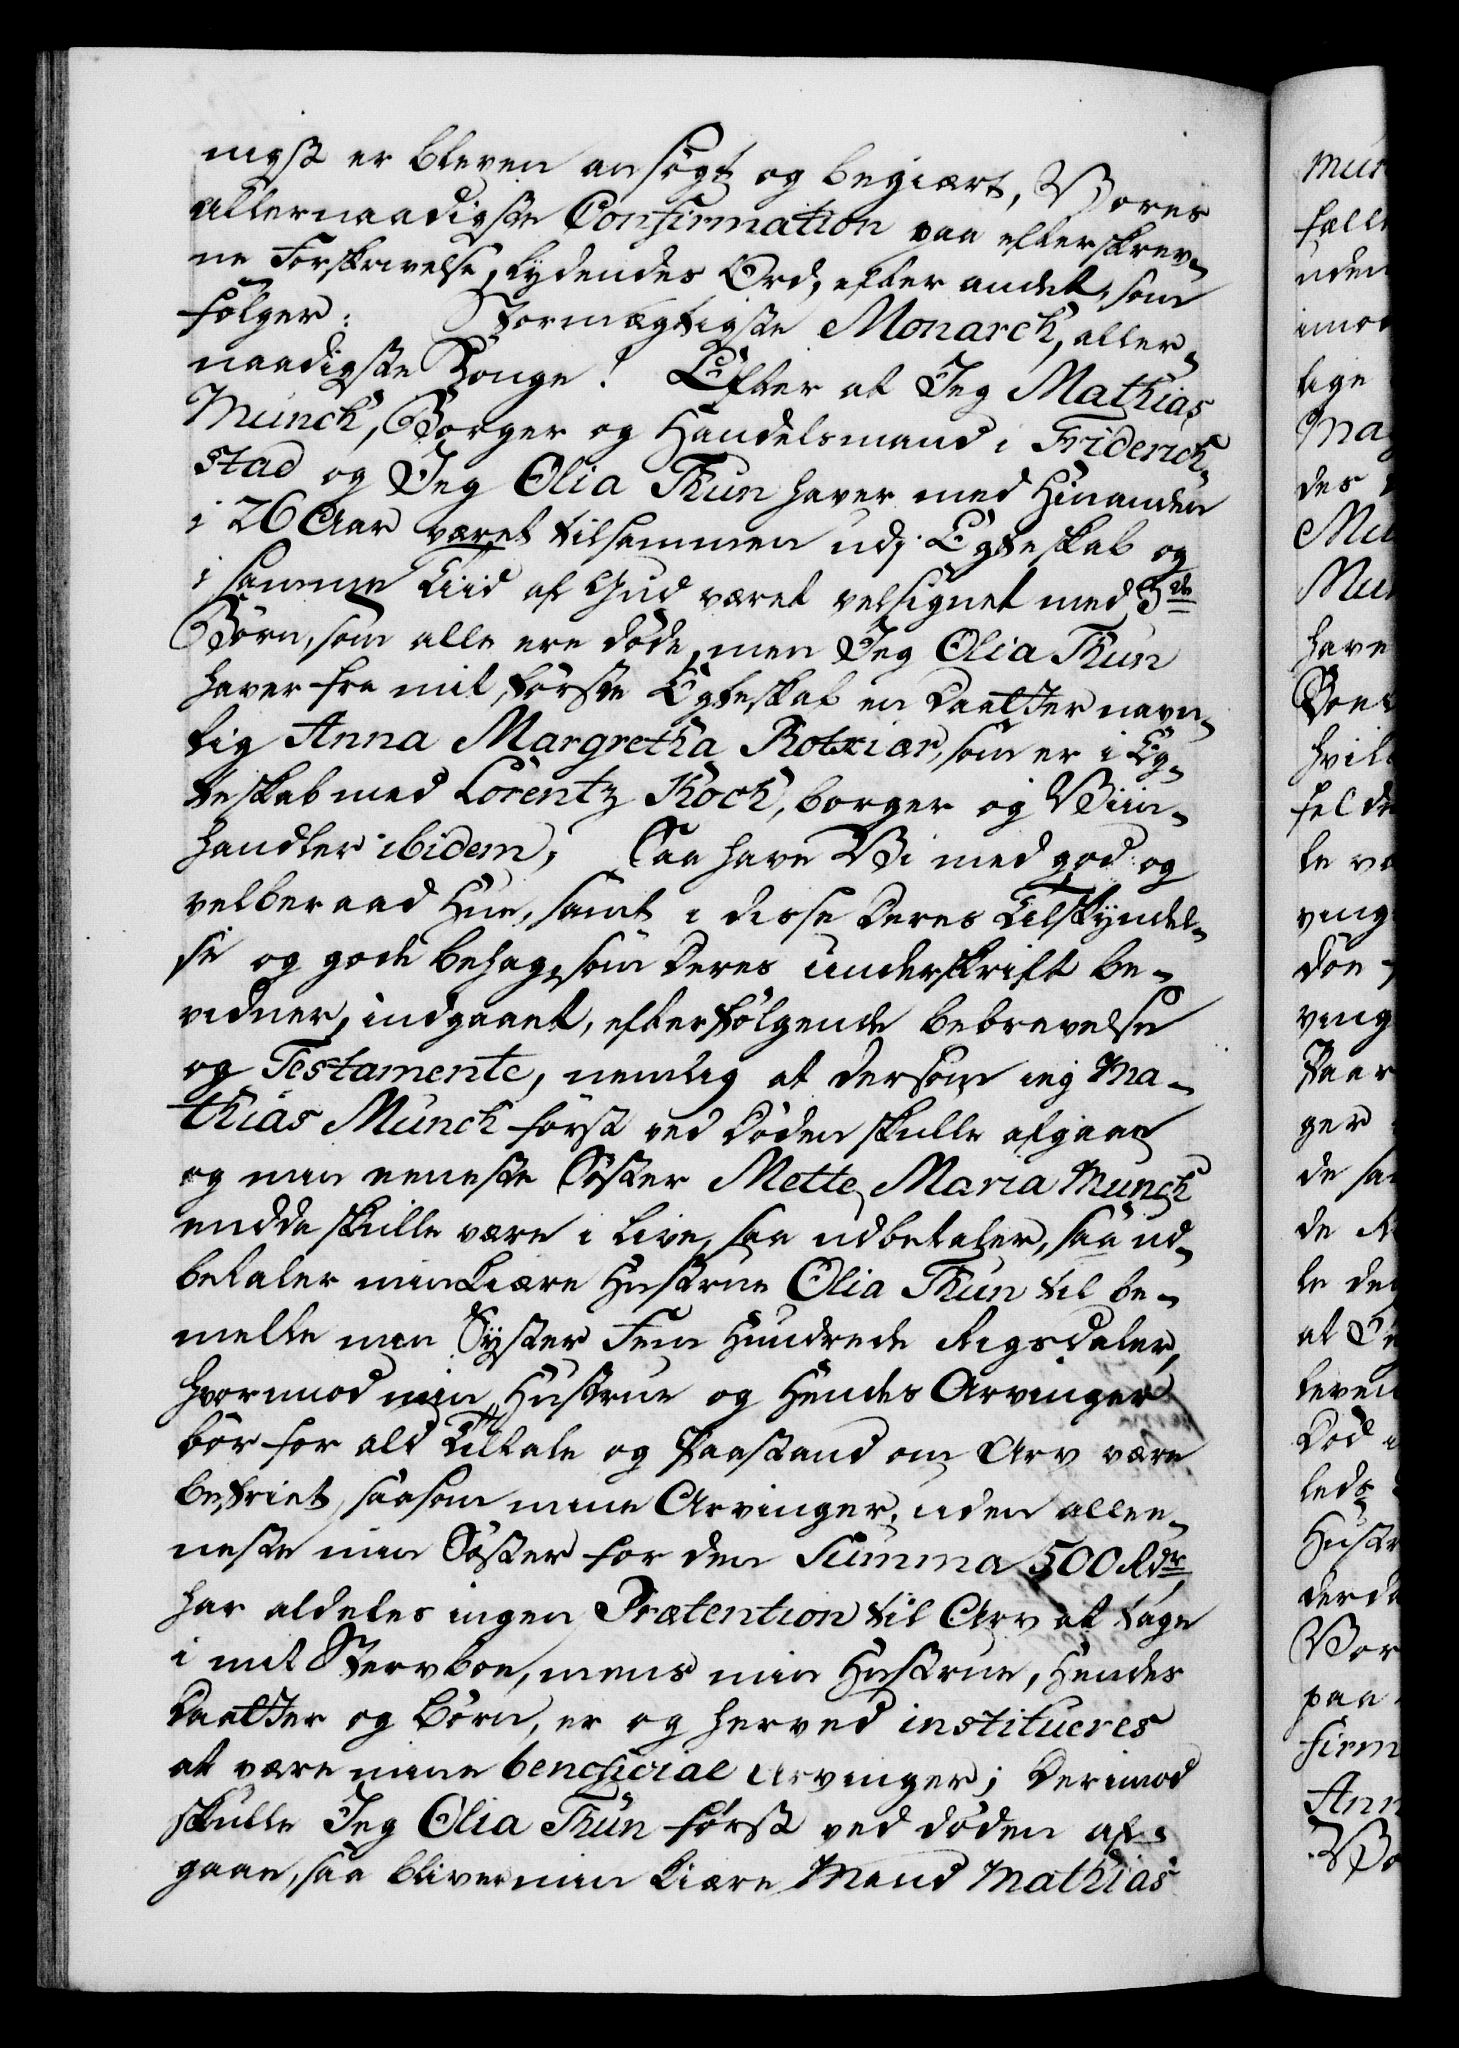 nigst er bleven ansøgt og begiært, Vores
allernaadigste Confirmation paa efterskrev-
ne Forskrivelse, lydendes Ord, efter andet, som
følger: Stormægtigste Monarch, aller-
naadigste Konge! Efter at Jeg Mathias
Munch, Borger og Handelsmand i Friderich-
stad og Jeg Olia Thun haver med Hinanden
i 26 Aar været tilsammen udj Egteskab og
i samme Tiid af Gud været velsignet med 3de
Børn, som alle ere døde, men Jeg Olia Thun
haver fra mit første Egteskab en Daatter navn-
lig Anna Margretha Rotkiær, som er i Eg-
teskab med Lorentz Koch, borger og Viin-
handler ibidem, Saa have Vi med god og
velberaad Hue, samt i disse Deres Tilskyndel-
se og gode behag, som Deres underskrift be-
vidner, indgaaet, efterfølgende bebrevelse
og Testamente, nemlig at dersom ieg Ma-
thias Munch først ved Døden skulle afgaae
og min eeneste Søster Mette Maria Munch
endda skulle være i Live, saa udbetaler, saa ud-
betaler min Kiære Hustrue Olia Thun til be-
melte min Syster Fem Hundrede Rigsdaler,
hvorimod min Hustrue og Hendes Arvinger
bør for all Tiltale og Paastand om Arv være
befriet, saasom mine Arvinger, uden allee-
neste min Søster for den Summa 500 Rdr
har aldeles ingen Prætention til Arv at tage
i mit Stervboe, mens min Hustrue, Hendes
Daatter og Børn, er og herved institueres
at være mine beneficial Arvinger; Derimod
skulle Jeg Olia Thun først ved døden af-
gaae, saa bliver min Kiære Mand Mathias